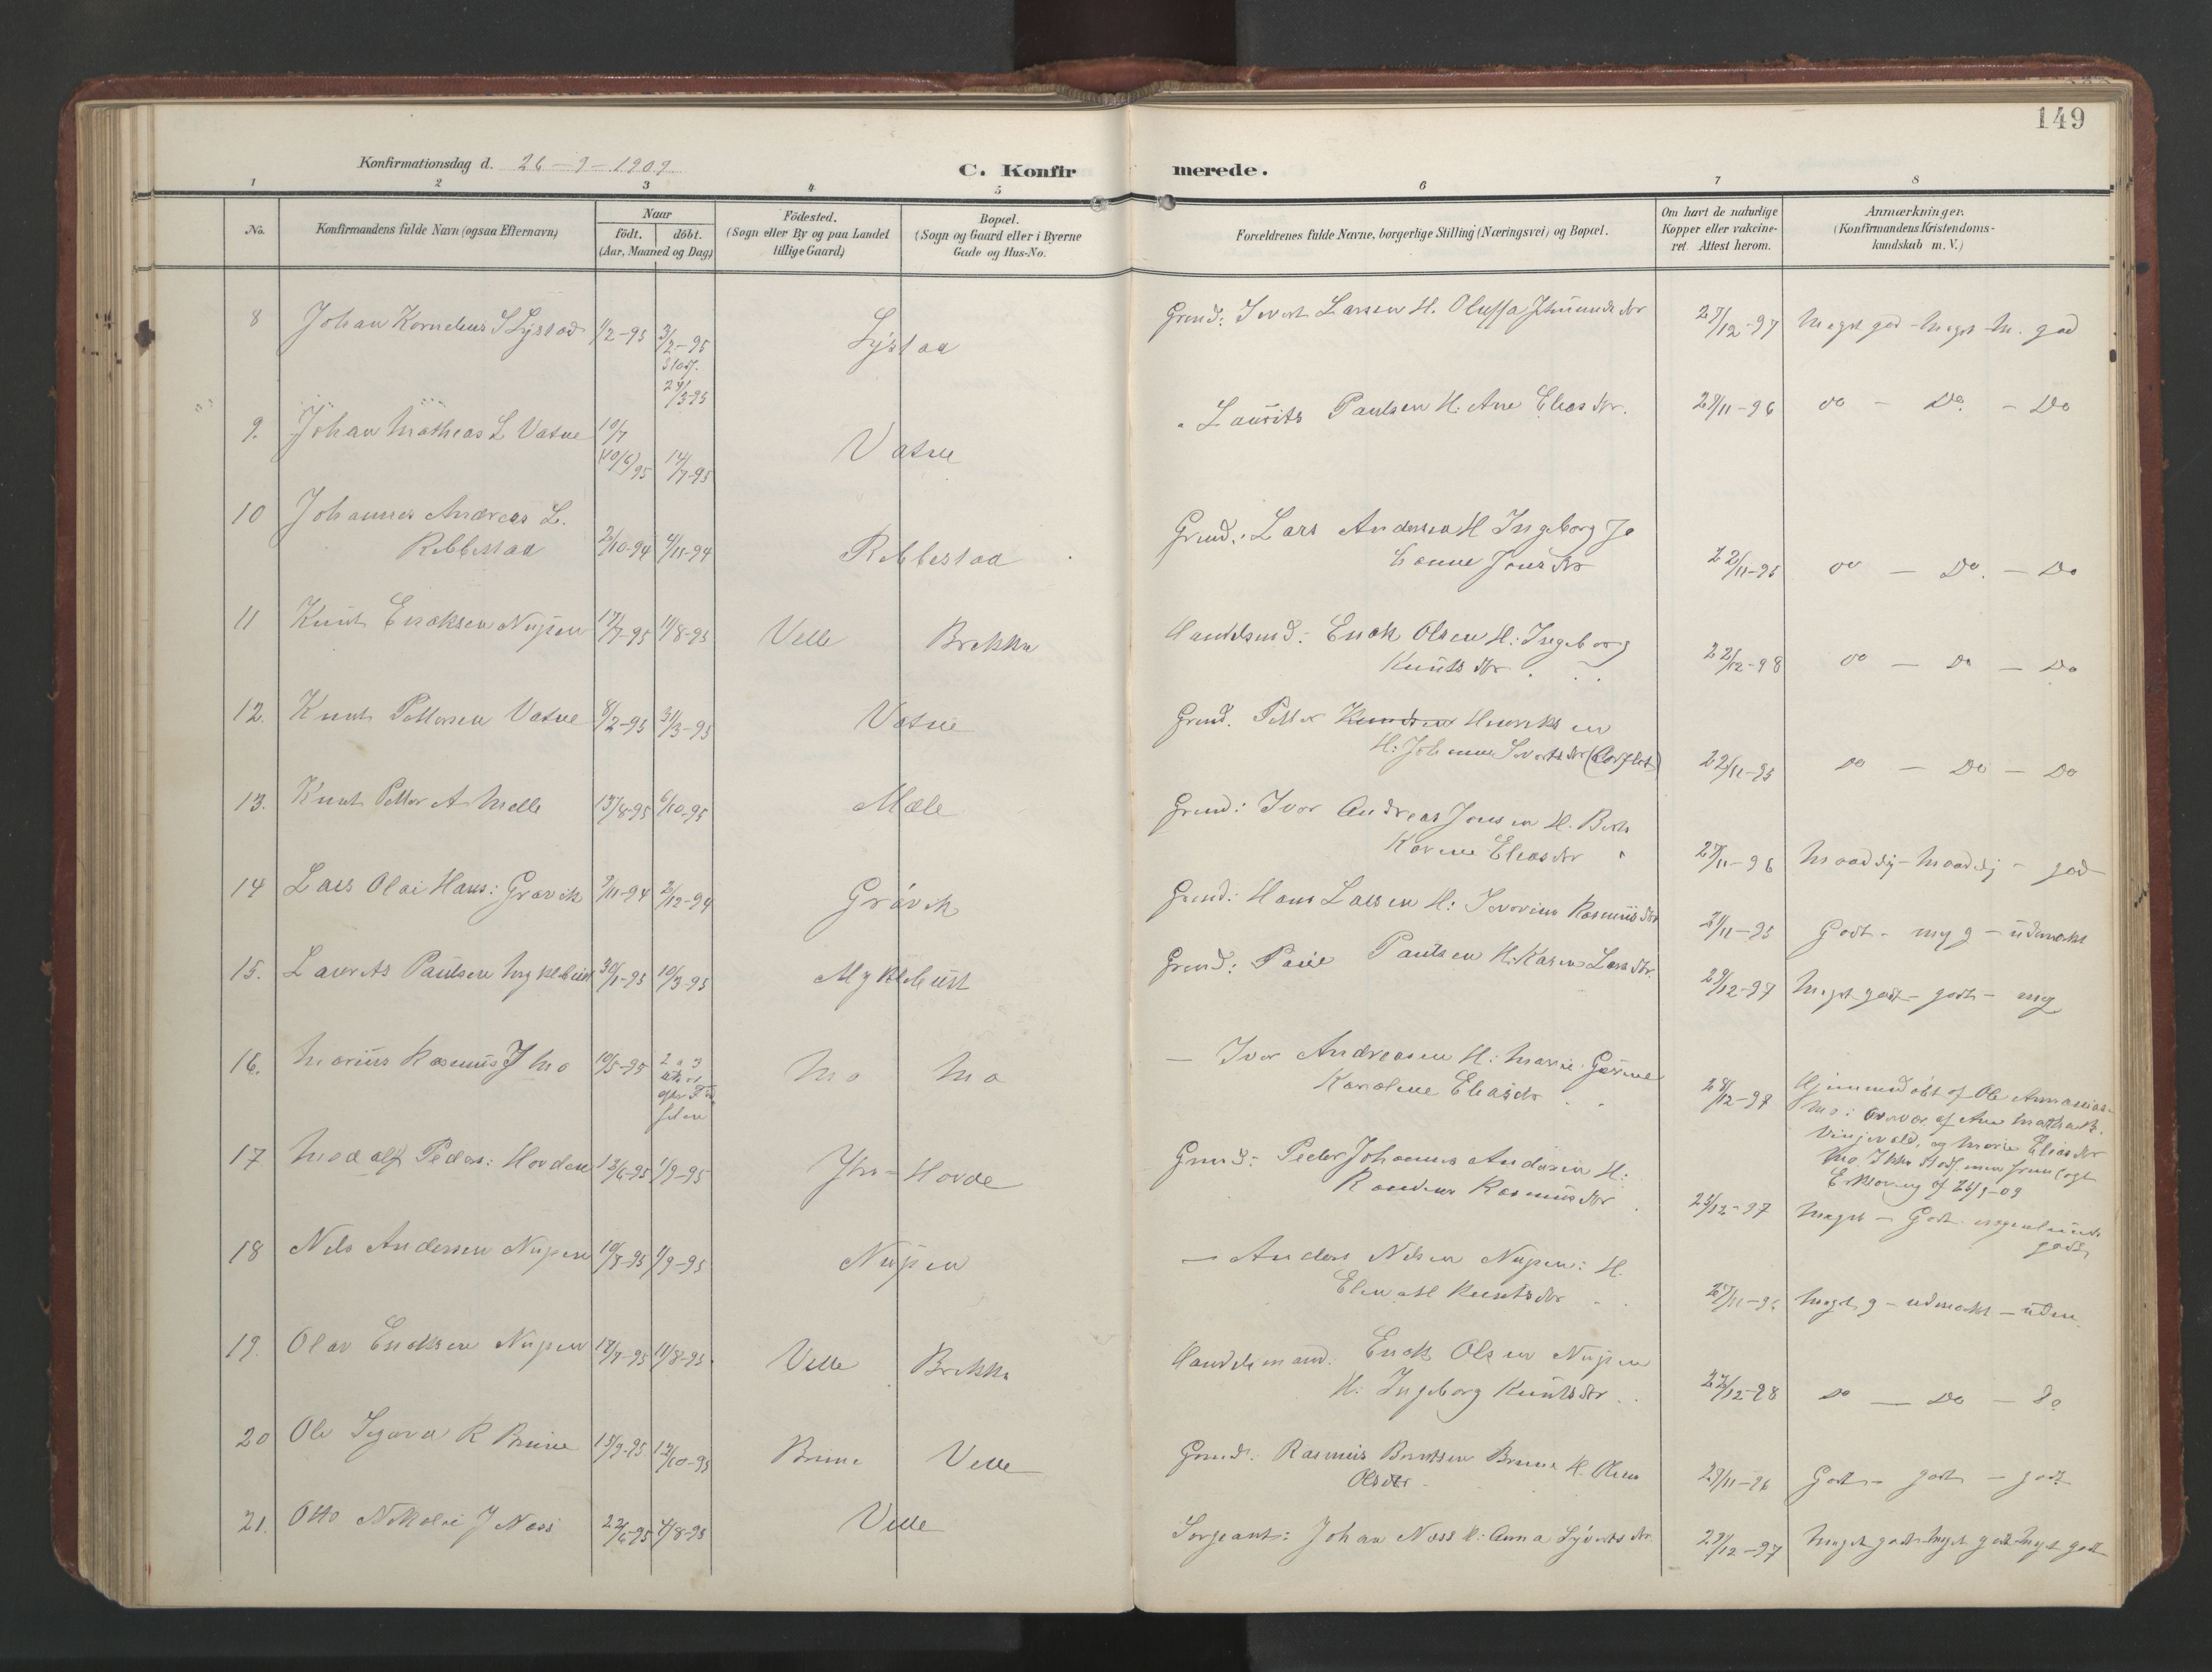 149
Konfirmationsdag d. 26-9-1909
C. Konfirmerede.
1 2 3 4 5 6 7 8
No.
Konfirmandens fulde Navn (ogsaa Efternavn)
Naar
födt. döbt.
(Aar, Maaned og Dag)
Födested.
(Sogn eller By og paa Landet
tillige Gaard)
Bopæl.
(Sogn og Gaard eller i Byerne
Gade og Hus-No.
Forældrenes fulde Navne, borgerlige Stilling (Næringsvei) og Bopæl.
Om havt de naturlige
Kopper eller vakcine-
ret. Attest herom.
Anmærkninger.
(Konfirmandens Kristendoms-
kundskab m. V.)
8 Johan Kornelius S Lystad 1/2-95 3/2-95 Lystad Grmd: Sivert Larsen H. Oluffa 27/12-97 Meget god - Meget - M. god
Stadf.
24/3-95
9. Johan Mathias L Vatne 10/7 Vatne " Laurits Paulsen H: Ane Eliasdtr. 29/11-96 do - Do. - Do
(10/6) 95 14/7-95
10 Johannes Andreas L. Grmd: Lars Andersen H Ingeborg Jo
Rebbestad 2/10-94 4/11-94 Rebbestad hanne Jonsdtr 22/11-95 do - Do. - Do
11 Knut Eriksen Nupen 17/7-95 11/8-95 Velle Brekke Handelsmd: Erik Olsen H: Ingeborg
Knutsdtr. 22/12-98 do - Do - Do
12. Knut Pettersen Vatne 8/2-95 31/3-95 Vatne Grmd. Petter Knudsen Henriksen
H: Johanne Sivertsdtr (Aarflot) 22/11-95 Do - Do - Do
13. Knut Petter A Melle 13/8-95 6/10-95 Mæle Grmd: Ivar Andreas Jonsen H. Berte
Karine Eliasdtr " 27/11-96 Maadelig - Maadelig - god
14 Lars Olai Hans: Gravik 7/11-94 2/12-94 Grøvik Grmd: Hans Larsen H: Severine Rasmusdtr 21/11-95 Godt - meg g - udmærket
15. Laurits Paulsen Myklebust 30/1-95 10/3-95 Myklebust Grmd: Paul Paulsen H: Karen Larsdtr. 29/12-97 Meget godt - godt - meg
16. Marius Rasmus J Mo 10/5-95 2 a 3 Mo Mo - Ivar Andreasen H: Marie Gurine
uker
efter Fød
selen
Karoline Eliasdtr 28/12-97 Hjemmedöbt af Ole Ananias
Mo: Overvær. af Ane
Vinjevold, og Marie Eliasdtr
Mo. Ikke Stadf. men fremlagt
Erklæring af 25/9-09
17 Medolf Peders: Hovden 12/6-95 1/9-95 Ytre-Hovde Grmd: Peder Johannes Andersen H:
Rasmusdtr 23/12-97 Meget - Godt - nogenlunde
godt
18 Nils Andersen Nupen 10/8-95 1/9-95 Nupen - Anders Nilsen Nupen: H.
Elen M Knutsdtr 27/11-96 Meget g - udmærket - udm.
19. Olav Eriksen Nupen 17/7-95 11/8-95 Velle Brekke Handelsmand. Erik Olsen Nupen
H: Ingeborg Knutsdtr 22/12-98 Do - Do - Do
20 Ole R Brune 15/9-95 13/10-95 Brune Velle Grmd: Rasmus Berntsen Brune H. Oline
Olsdtr 29/11-96 Godt - godt - godt
21. Otto Nikolai J Næss 22/6-95 4/8-95 Velle Sergeant: Johan Næss H: Anna Syvertsdtr 29/12-97 Meget godt - Meget godt - Meget godt